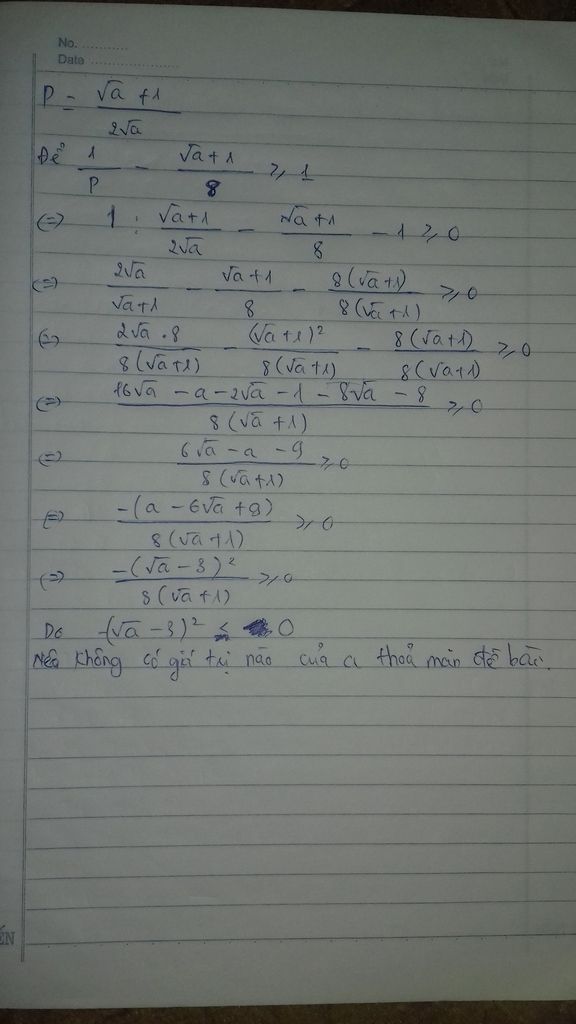 No. ...........
Date .....................
P = √a + 1 / 2√a
Để 1/P - √a + 1 / 8 ≥ 1
(=) 1 : √a + 1 / 2√a - √a + 1 / 8 - 1 ≥ 0
(=) 2√a / √a + 1 - √a + 1 / 8 - 8(√a + 1) / 8(√a + 1) ≥ 0
(=) 2√a . 8 / 8(√a + 1) - (√a + 1)² / 8(√a + 1) - 8(√a + 1) / 8(√a + 1) ≥ 0
(=) 16√a - a - 2√a - 1 - 8√a - 8 / 8(√a + 1) ≥ 0
(=) 6√a - a - 9 / 8(√a + 1) ≥ 0
(=) -(a - 6√a + 9) / 8(√a + 1) ≥ 0
(=) -(√a - 3)² / 8(√a + 1) ≥ 0
Do -(√a - 3)² ≤ 0
Nên không có giá trị nào của a thoả mãn đề bài.
ẾN